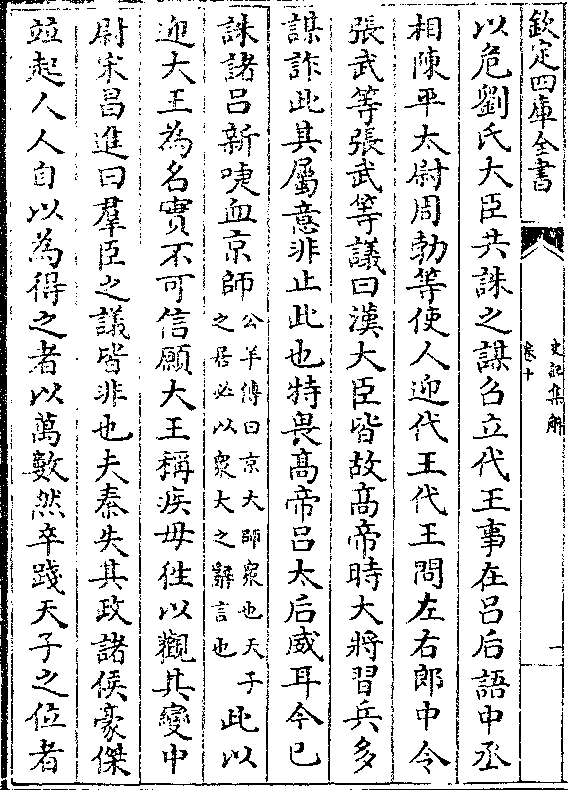 欽定四庫全書
史記集解
卷十
一
以危劉氏大臣共誅之謀召立代王事在吕后語中丞
相陳平太尉周勃等使人迎代王代王問左右郎中令
張武等張武等議曰漢大臣皆故髙帝時大將習兵多
謀詐此其屬意非止此也特畏髙帝吕太后威耳今已
誅諸吕新喋血京師
公羊傳曰京大師衆也天子
之居必以衆大之辭言也
此以
迎大王為名實不可信願大王稱疾毋往以觀其變中
尉宋昌進曰羣臣之議皆非也夫秦失其政諸侯豪傑
竝起人人自以為得之者以萬數然卒踐天子之位者